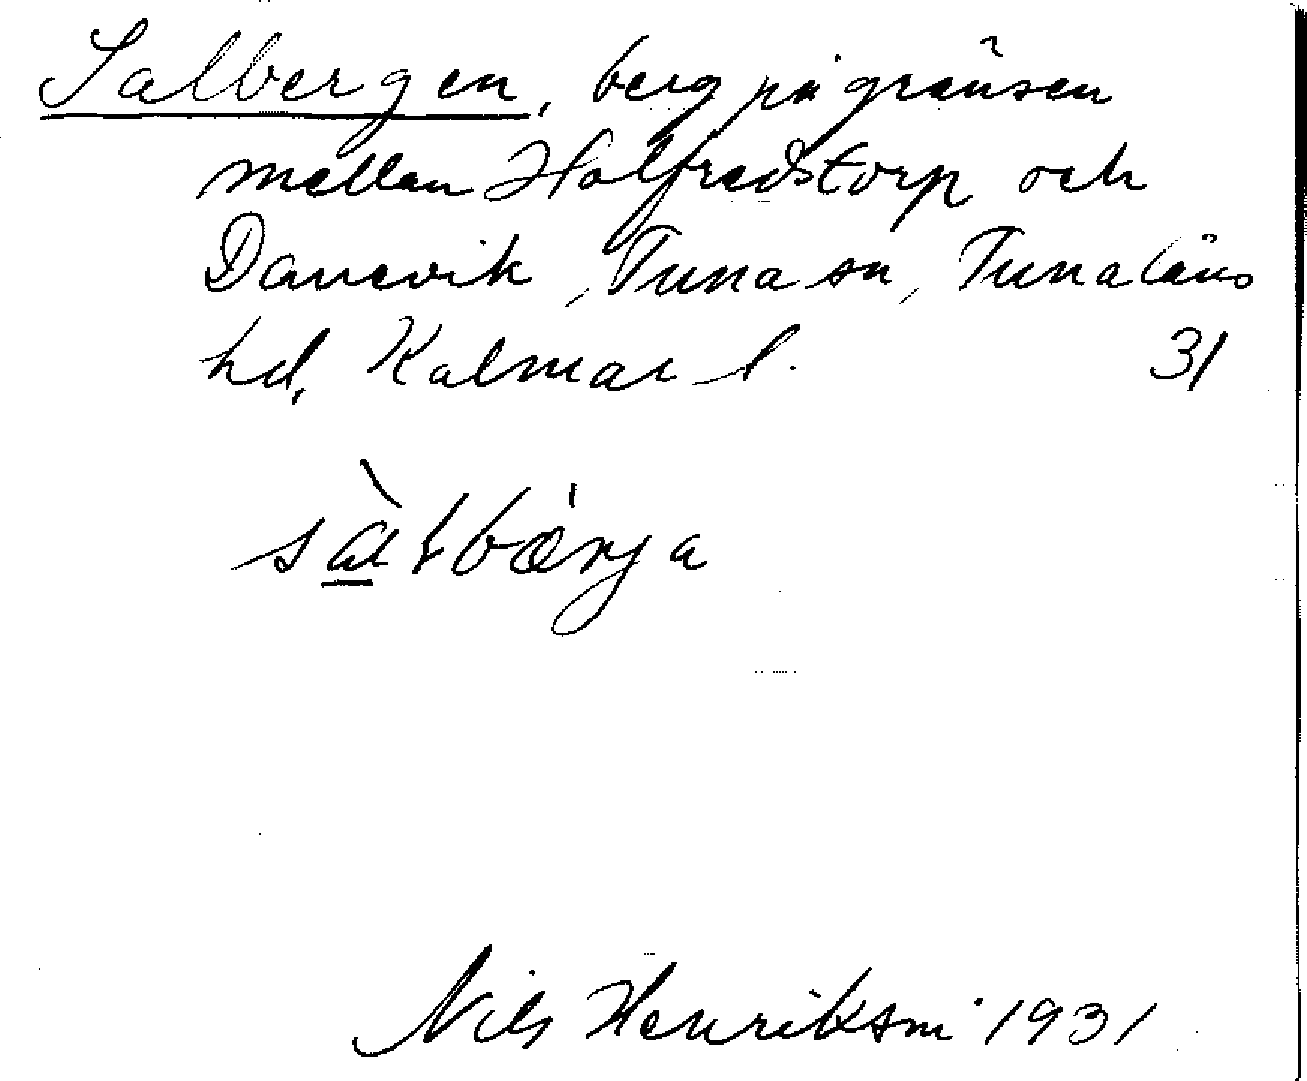 Salbergen, berg på gränsen
mellan Holfredstorp och
Danevik, Tuna sn, Tunaläns
hd, Kalmar l. 31
sàlbærja
Nils Henriksson 1931